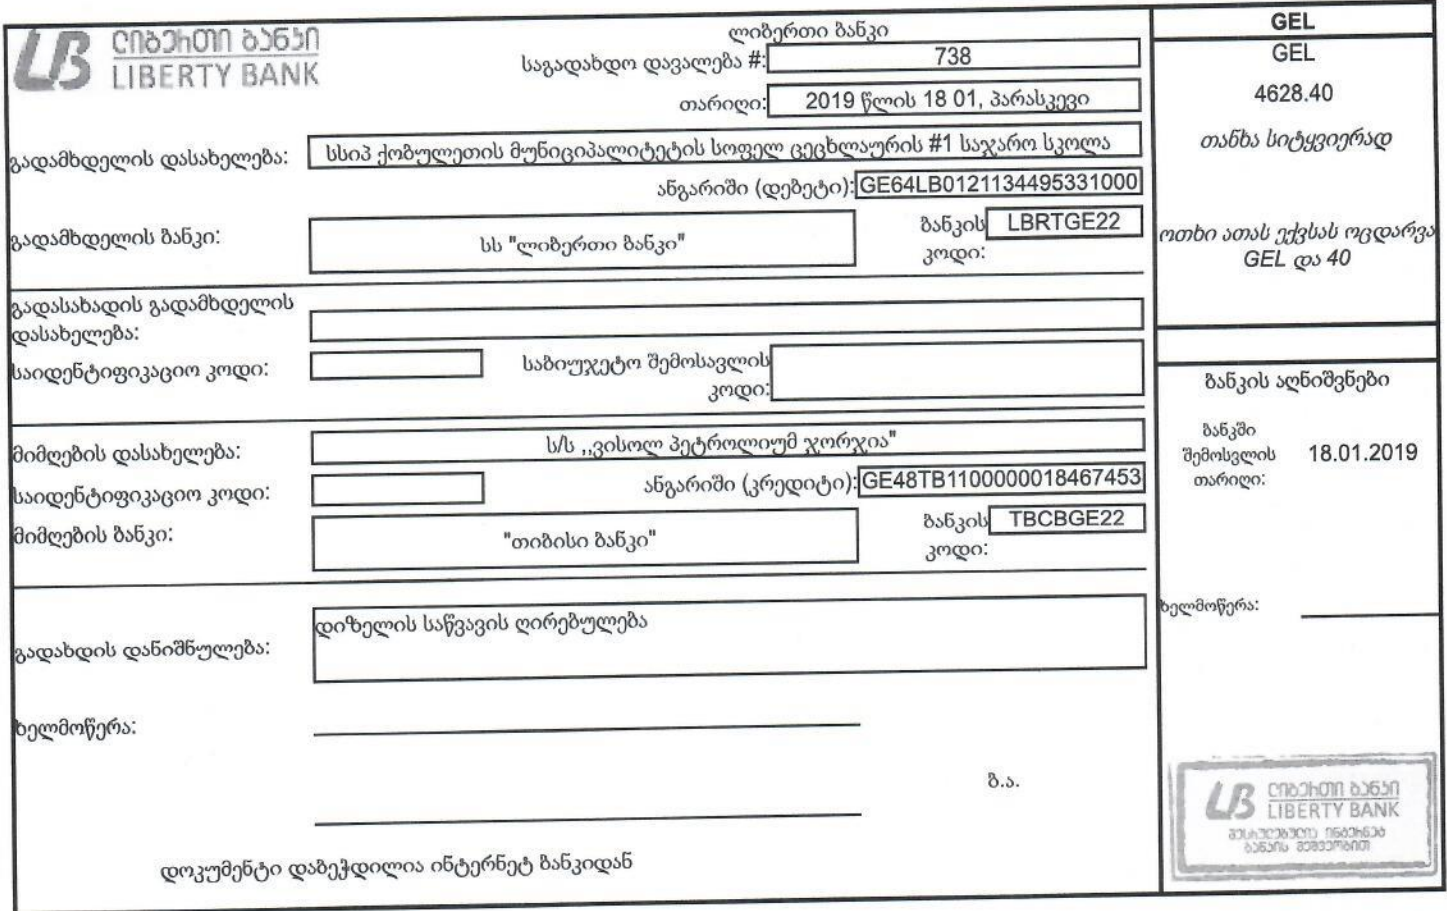 ლიბერთი ბანკი
LIBERTY BANK
ლიბერთი ბანკი
საგადახდო დავალება #: 738
თარიღი: 2019 წლის 18 01, პარასკევი
გადამხდელის დასახელება: სსიპ ქობულეთის მუნიციპალიტეტის სოფელ ცეცხლაურის #1 საჯარო სკოლა
ანგარიში (დებეტი): GE64LB0121134495331000
გადამხდელის ბანკი: სს "ლიბერთი ბანკი" ბანკის კოდი: LBRTGE22
გადასახადის გადამხდელის
დასახელება:
საიდენტიფიკაციო კოდი: საბიუჯეტო შემოსავლის
კოდი:
მიმღების დასახელება: ს/ს ,,ვისოლ პეტროლიუმ ჯორჯია"
საიდენტიფიკაციო კოდი: ანგარიში (კრედიტი): GE48TB1100000018467453
მიმღების ბანკი: "თიბისი ბანკი" ბანკის კოდი: TBCBGE22
გადახდის დანიშნულება: დიზელის საწვავის ღირებულება
ხელმოწერა:
ბ.ა.
დოკუმენტი დაბეჭდილია ინტერნეტ ბანკიდან
GEL
GEL
4628.40
თანხა სიტყვიერად
ოთხი ათას ექვსას ოცდარვა
GEL და 40
ბანკის აღნიშვნები
ბანკში
შემოსვლის 18.01.2019
თარიღი:
ხელმოწერა:
ლიბერთი ბანკი
LIBERTY BANK
შესრულებულია ინტერნეტ
ბანკის მეშვეობით